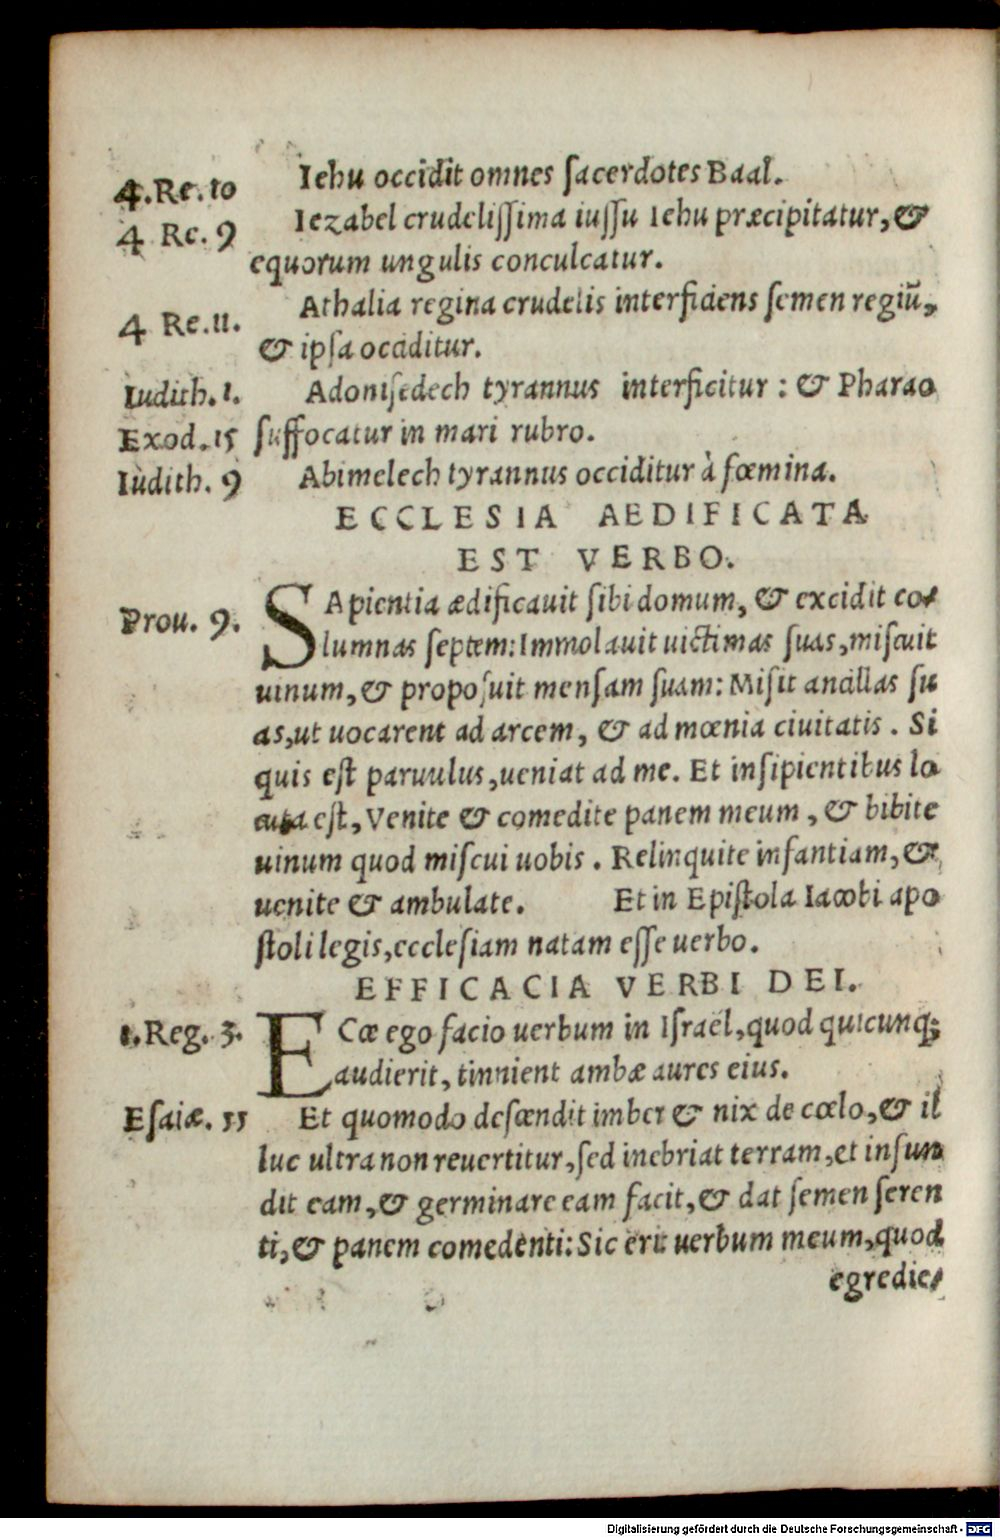 4.Re.10 Iehu occidit omnes ſacerdotes Baal.
4 Re. 9 Iezabel crudeliſſima iuſſu Iehu præcipitatur, &
equorum ungulis conculcatur.
Athalia regina crudelis interficiens ſemen regiū,
4 Re.11. & ipſa occiditur.
Iudith. 1. Adoniſedech tyrannus interficitur : & Pharao
Exod. 15 ſuffocatur in mari rubro.
Iudith. 9 Abimelech tyrannus occiditur à fœmina.
ECCLESIA AEDIFICATA
EST VERBO.
Prou. 9. SApientia ædificauit ſibi domum, & excidit co-
lumnas ſeptem: Immolauit uictimas ſuas, miſcuit
uinum, & propoſuit menſam ſuam: Miſit ancillas ſu
as, ut uocarent ad arcem, & ad mœnia ciuitatis. Si
quis eſt paruulus, ueniat ad me. Et inſipientibus lo
cuta eſt, Venite & comedite panem meum, & bibite
uinum quod miſcui uobis. Relinquite infantiam, &
uenite & ambulate. Et in Epiſtola Iacobi apo
ſtoli legis, eccleſiam natam eſſe uerbo.
EFFICACIA VERBI DEI.
1.Reg. 3. ECce ego facio uerbum in Iſraël, quod quicunq;
audierit, tinnient ambæ aures eius.
Eſaiæ. 55 Et quomodo deſcendit imber & nix de cœlo, & il
luc ultra non reuertitur, ſed inebriat terram, et infun
dit eam, & germinare eam facit, & dat ſemen ſeren
ti, & panem comedenti: Sic erit uerbum meum, quod
egredie-
Digitalisierung gefördert durch die Deutsche Forschungsgemeinschaft - DFG